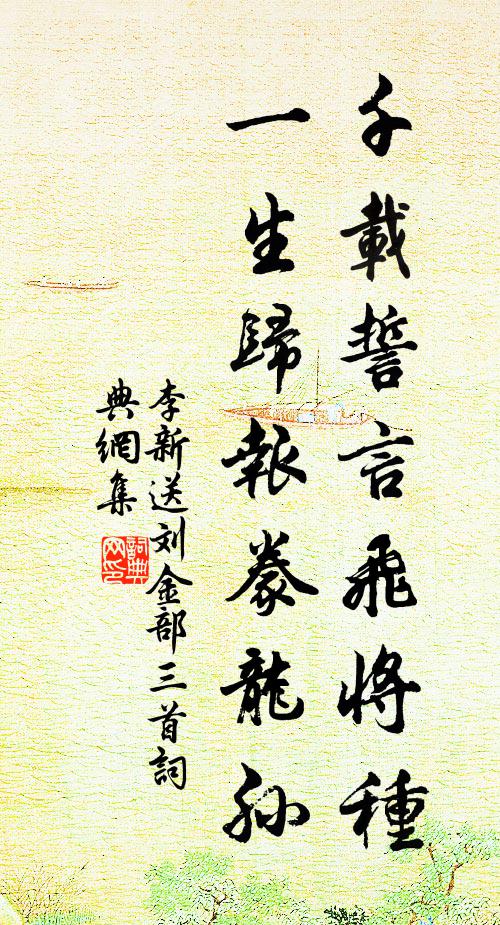 千載誓言飛將種
一生歸報豢龍孫
李新送刘金部三首詞
典網集
詞典
网印